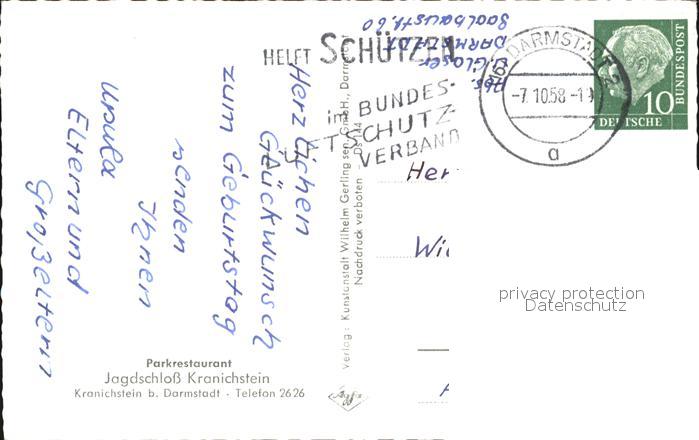 HELFT SCHÜTZEN
im BUNDES-
LUFTSCHUTZ-
VERBAND
Abs.
U. Gloser
DARMSTADT
DARMSTADT 2
-7.10.58-1
a
DEUTSCHE
BUNDESPOST
10
Herzlichen
Glückwunsch
zum Geburtstag
senden
Ihnen
Ursula
Eltern und
Großeltern
Her
Wi
Verlag: Kunstanstalt Wilhelm Gerling sen. GmbH., Darmstadt
Nachdruck verboten - Ds 144
Parkrestaurant
Jagdschloß Kranichstein
Kranichstein b. Darmstadt · Telefon 2626
privacy protection
Datenschutz